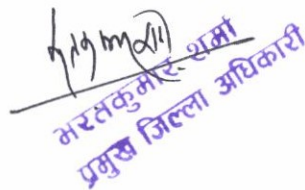 भरतकुमार शर्मा
प्रमुख जिल्ला अधिकारी